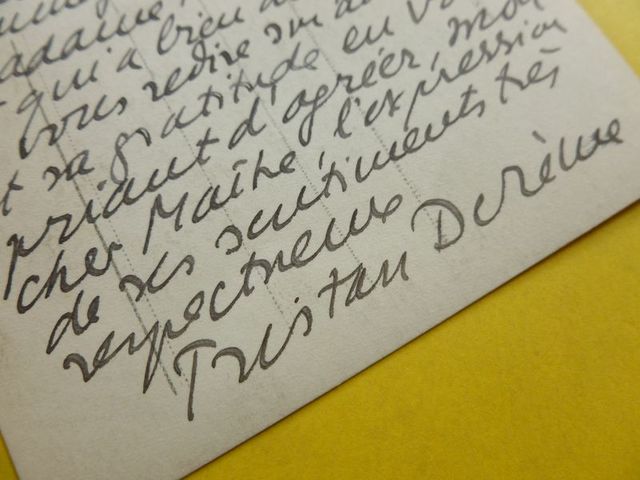 adame,
qui a bien
vous redire son a
t sa gratitude en vo
priant d'agréer, mon
cher Maître, l'expression
de ses sentiments très
respectueux
Tristan Derème